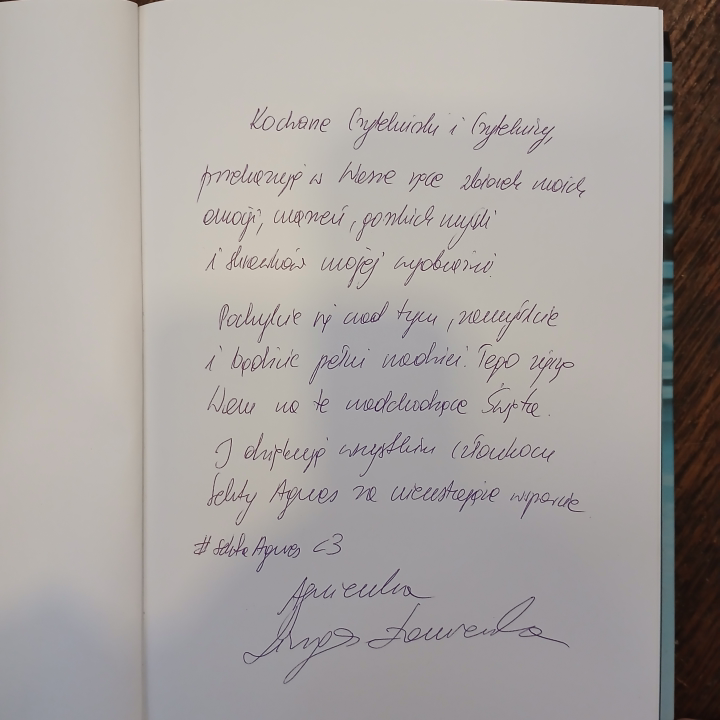 Kochane Czytelniczki i Czytelnicy,
przekazuję w Wasze ręce zbiorek moich
emocji, marzeń, gorzkich myśli
i skrawków mojej wyobraźni.
Pochylcie się nad tym, zamyślcie
i bądźcie pełni nadziei. Tego życzę
Wam na te nadchodzące Święta.
I dziękuję wszystkim członkom
Sekty Agnes za nieustające wsparcie
#SektaAgnes <3
Agnieszka